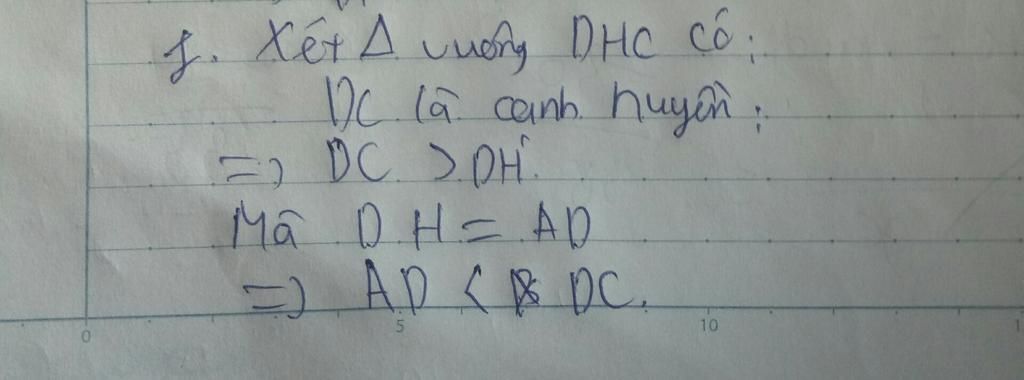 f. Xét Δ vuông DHC có:
DC là cạnh huyền:
=> DC > DH.
Mà DH = AD
=> AD < DC.
0 5 10 1